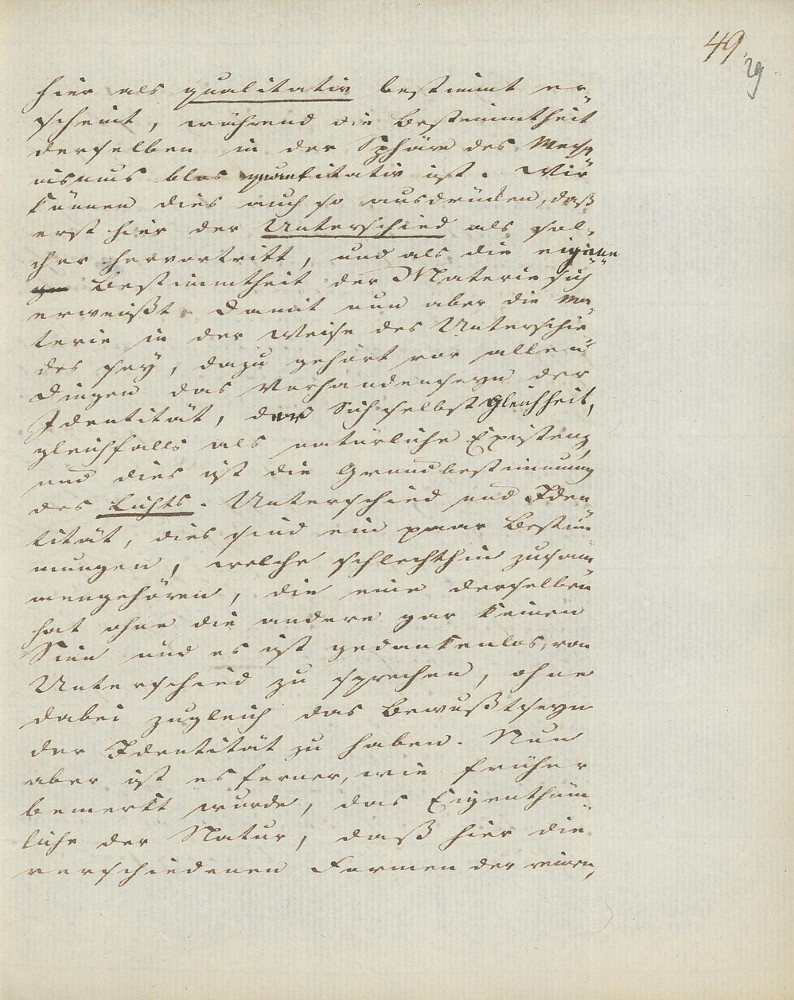 49.
29
hier als qualitativ bestimmt er
scheint, während die Bestimmtheit
derselben in der Sphäre des Mecha
nismus blos quantitativ ist. Wir
können dies auch so ausdrücken, daß
erst hier der Unterschied als sol-
cher hervortritt, und als die eigene
Bestimmtheit der Materie sich
erweißt. Damit nun aber die Ma
terie in der Weise des Unterschie
des sey, dazu gehört vor allen
Dingen das Vorhandenseyn der
Identität, der Sichselbstgleichheit,
gleichfalls als natürliche Existenz,
und dies ist die Grundbestimmung
des Lichts. Unterschied und Iden
tität, dies sind ein paar Bestim
mungen, welche schlechthin zusam
mengehören, die eine derselben
hat ohne die andere gar keinen
Sinn und es ist gedankenlos, von
Unterschied zu sprechen, ohne
dabei zugleich das Bewußtseyn
der Identität zu haben. Nun
aber ist es ferner, wie früher
bemerkt wurde, das Eigenthüm
liche der Natur, daß hier die
verschiedenen Formen der reinen,